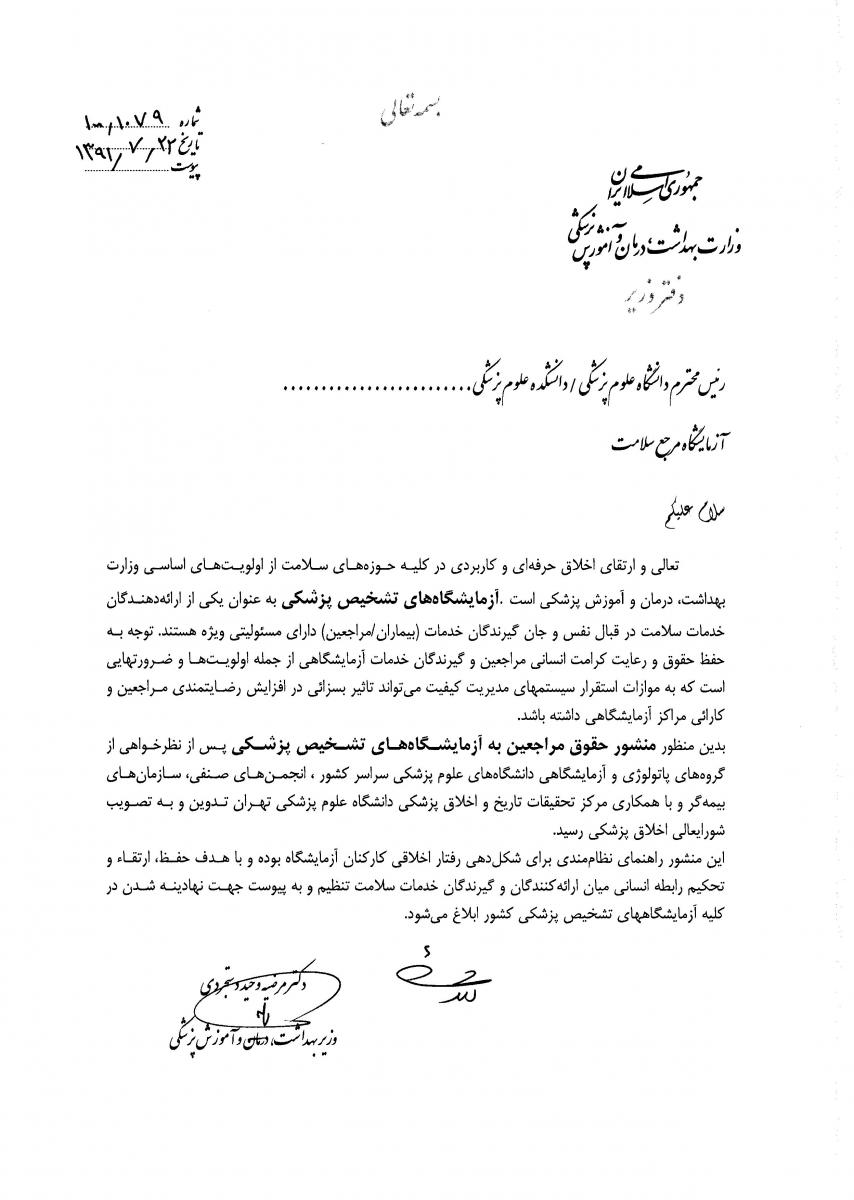 بسمه تعالی
شماره ۱۰۰/۱۰۷۹
تاریخ ۱۳۹۱/۷/۲۲
پیوست
جمهوری اسلامی ایران
وزارت بهداشت، درمان و آموزش پزشکی
دفتر وزیر
رئیس محترم دانشگاه علوم پزشکی / دانشکده علوم پزشکی.........................
آزمایشگاه مرجع سلامت
سلام علیکم
تعالی و ارتقای اخلاق حرفه‌ای و کاربردی در کلیه حوزه‌های سلامت از اولویت‌های اساسی وزارت
بهداشت، درمان و آموزش پزشکی است .آزمایشگاه‌های تشخیص پزشکی به عنوان یکی از ارائه‌دهندگان
خدمات سلامت در قبال نفس و جان گیرندگان خدمات (بیماران/مراجعین) دارای مسئولیتی ویژه هستند. توجه به
حفظ حقوق و رعایت کرامت انسانی مراجعین و گیرندگان خدمات آزمایشگاهی از جمله اولویت‌ها و ضرورتهایی
است که به موازات استقرار سیستمهای مدیریت کیفیت می‌تواند تاثیر بسزائی در افزایش رضایتمندی مراجعین و
کارائی مراکز آزمایشگاهی داشته باشد.
بدین منظور منشور حقوق مراجعین به آزمایشگاه‌های تشخیص پزشکی پس از نظرخواهی از
گروه‌های پاتولوژی و آزمایشگاهی دانشگاه‌های علوم پزشکی سراسر کشور ، انجمن‌های صنفی، سازمان‌های
بیمه‌گر و با همکاری مرکز تحقیقات تاریخ و اخلاق پزشکی دانشگاه علوم پزشکی تهران تدوین و به تصویب
شورایعالی اخلاق پزشکی رسید.
این منشور راهنمای نظام‌مندی برای شکل‌دهی رفتار اخلاقی کارکنان آزمایشگاه بوده و با هدف حفظ، ارتقاء و
تحکیم رابطه انسانی میان ارائه‌کنندگان و گیرندگان خدمات سلامت تنظیم و به پیوست جهت نهادینه شدن در
کلیه آزمایشگاههای تشخیص پزشکی کشور ابلاغ می‌شود.
دکتر مرضیه وحید دستجردی
وزیر بهداشت، درمان و آموزش پزشکی